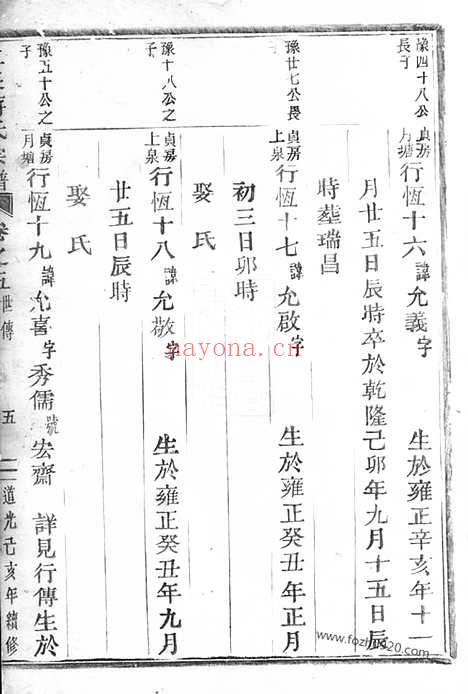 豫四十八公長子
貞房月塘行恆十六諱允義字 生於雍正辛亥年十一
月廿五日辰時卒於乾隆己卯年九月十五日辰
時塟瑞昌
豫廿七公畏子
貞房上泉行恆十七諱允啟字 生於雍正癸丑年正月
初三日卯時
娶氏
豫十八公之子
貞房上泉行恆十八諱允敬字 生於雍正癸丑年九月
廿五日辰時
娶氏
豫五十公之子
貞房月塘行恆十九諱允喜字秀儒號宏齋 詳見行傳生於
氏宗譜 卷之五世傳 五 道光己亥年續修
nayona.cn
www.fozhu920.com